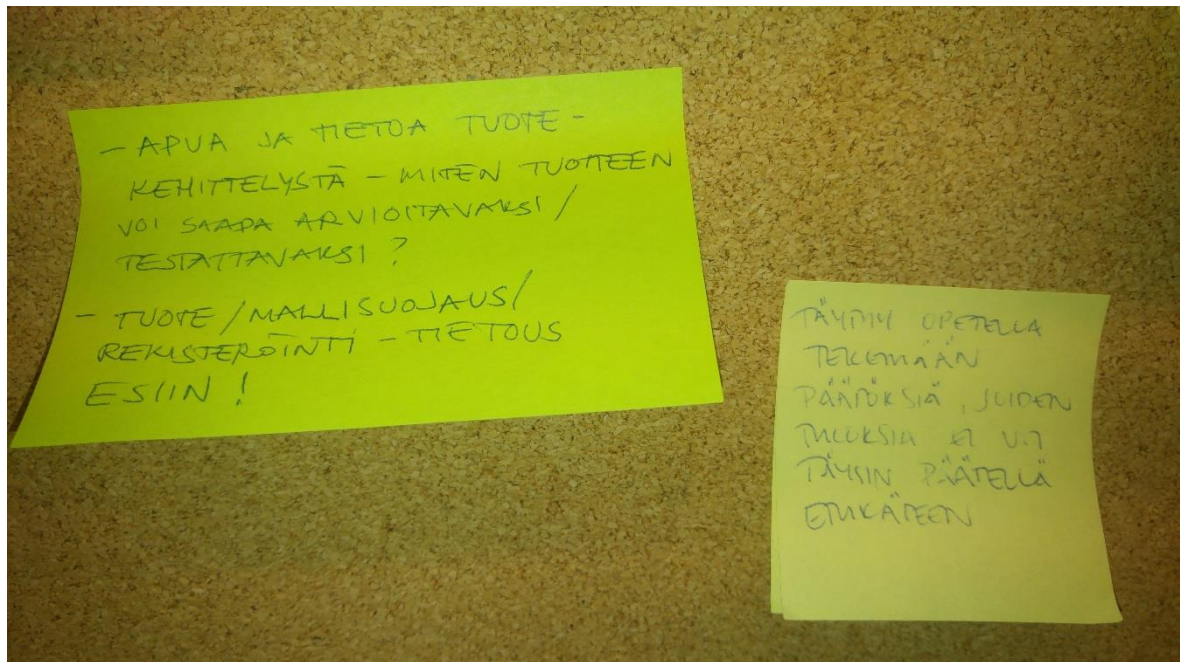 - APUA JA TIETOA TUOTE-
KEHITTELYSTÄ - MITEN TUOTTEEN
VOI SAADA ARVIOITAVAKSI /
TESTATTAVAKSI ?
- TUOTE / MALLISUOJAUS /
REKISTERÖINTI - TIETOUS
ESIIN !
TÄYTYY OPETELLA
TEKEMÄÄN
PÄÄTÖKSIÄ, JOIDEN
TULOKSIA EI VOI
TÄYSIN PÄÄTELLÄ
ETUKÄTEEN